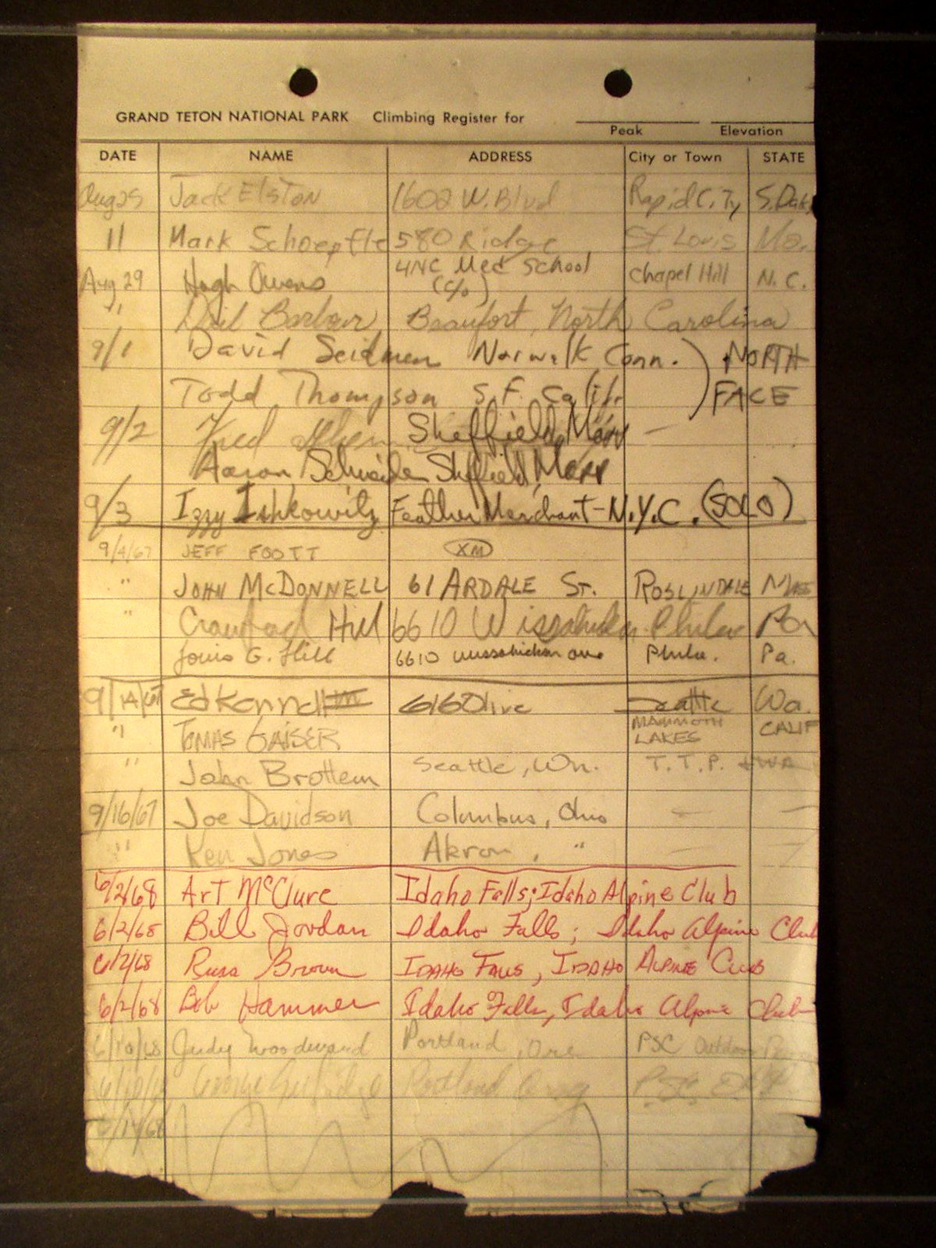 GRAND TETON NATIONAL PARK Climbing Register for
Peak Elevation
DATE NAME ADDRESS City or Town STATE
Aug 25 Jack Elston 1602 W. Blvd Rapid City S. Dak
11 Mark Schoepfle 580 Ridge St. Louis Mo.
Aug 29 Hugh Owens UNC Med School (c/o) Chapel Hill N. C.
" Barbour Beaufort, North Carolina
9/1 David Seidman Norwalk Conn. ) NORTH
Todd Thompson S.F. Calif. ) FACE
9/2 Fred Sheffield, Mass —
Aaron Schneider Sheffield, Mass
9/3 Izzy Ishkowitz Feather Merchant - N.Y.C. (SOLO)
9/4/67 JEFF FOOTT XM
" JOHN McDONNELL 61 ARDALE ST. ROSLINDALE Mass
" Crawford Hill 6610 Wissahickon Phila Pa
Louis G. Hill 6610 Wissahickon ave Phila. Pa.
9/14/67 Ed Konnell 616 Olive Seattle Wa.
" TOMAS GAISER MAMMOTH LAKES CALIF
" John Brottem Seattle, Wn. T.T.P.
9/16/67 Joe Davidson Columbus, Ohio — —
" Ken Jones Akron, " — —
6/2/68 Art McClure Idaho Falls; Idaho Alpine Club
6/2/68 Bill Jordan Idaho Falls; Idaho Alpine Club
6/2/68 Russ Brown IDAHO FALLS, IDAHO ALPINE CLUB
6/2/68 Bob Hammer Idaho Falls, Idaho Alpine Club
6/10/68 Judy Woodward Portland, Ore PSC Outdoor
George Portland Oreg